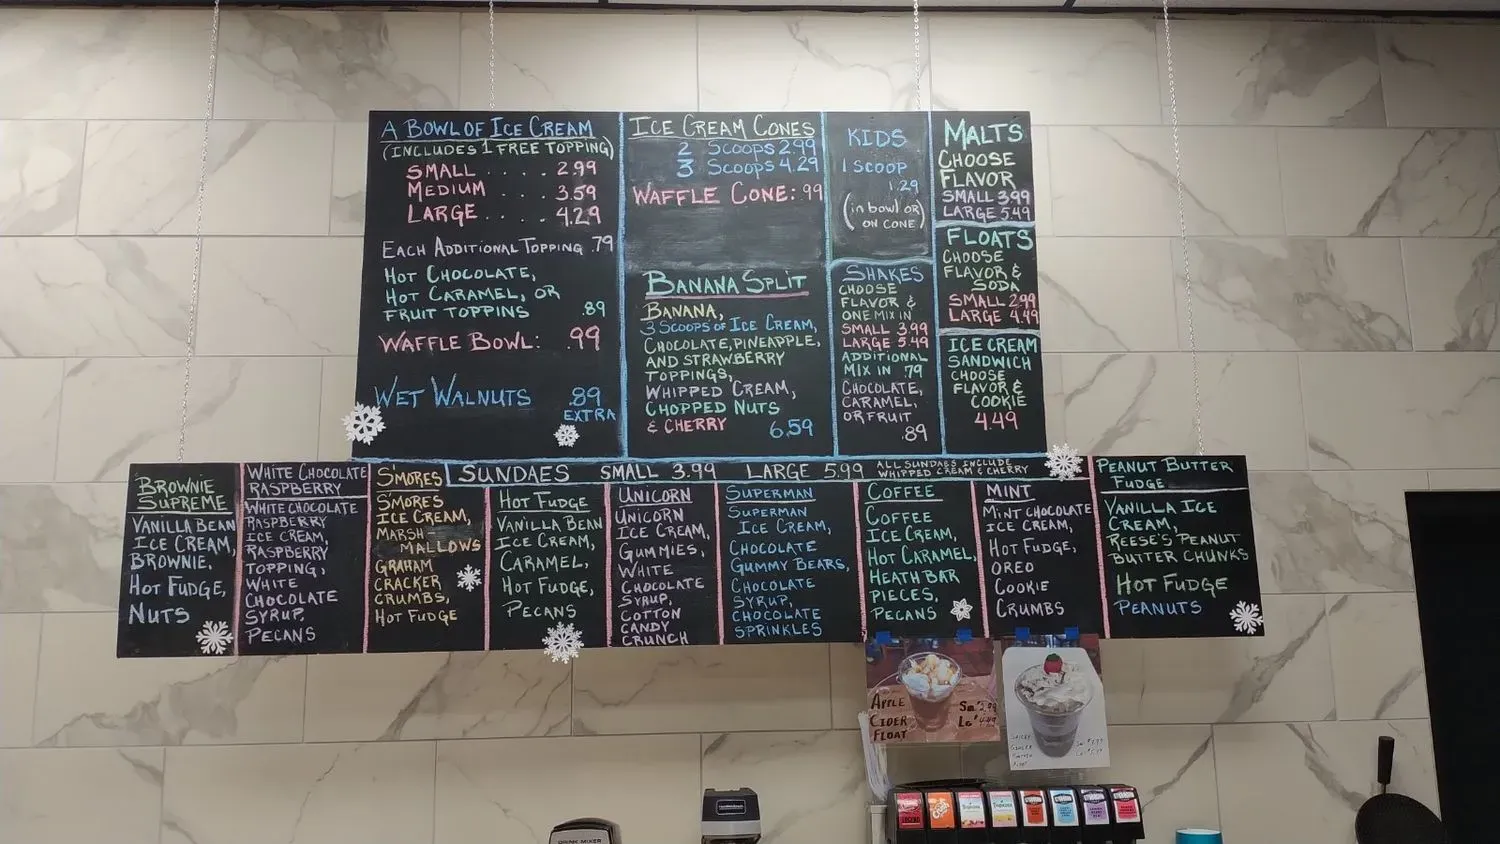 A BOWL OF ICE CREAM
(INCLUDES 1 FREE TOPPING)
SMALL .... 2.99
MEDIUM .... 3.59
LARGE .... 4.29
EACH ADDITIONAL TOPPING .79
HOT CHOCOLATE,
HOT CARAMEL, OR
FRUIT TOPPINS .89
WAFFLE BOWL: .99
WET WALNUTS .89
EXTRA
ICE CREAM CONES
2 SCOOPS 2.99
3 SCOOPS 4.29
WAFFLE CONE: 99
BANANA SPLIT
BANANA,
3 SCOOPS OF ICE CREAM,
CHOCOLATE, PINEAPPLE,
AND STRAWBERRY
TOPPINGS,
WHIPPED CREAM,
CHOPPED NUTS
& CHERRY 6.59
KIDS
1 SCOOP
1.29
(in bowl or
on CONE)
SHAKES
CHOOSE
FLAVOR &
ONE MIX IN
SMALL 3.99
LARGE 5.49
ADDITIONAL
MIX IN .79
CHOCOLATE,
CARAMEL,
OR FRUIT
.89
MALTS
CHOOSE
FLAVOR
SMALL 3.99
LARGE 5.49
FLOATS
CHOOSE
FLAVOR &
SODA
SMALL 2.99
LARGE 4.49
ICE CREAM
SANDWICH
CHOOSE
FLAVOR &
COOKIE
4.49
SUNDAES SMALL 3.99 LARGE 5.99
ALL SUNDAES INCLUDE
WHIPPED CREAM & CHERRY
BROWNIE
SUPREME
VANILLA BEAN
ICE CREAM,
BROWNIE,
HOT FUDGE,
NUTS
WHITE CHOCOLATE
RASPBERRY
WHITE CHOCOLATE
RASPBERRY
ICE CREAM,
RASPBERRY
TOPPING,
WHITE
CHOCOLATE
SYRUP,
PECANS
S'MORES
S'MORES
ICE CREAM,
MARSH-
MALLOWS
GRAHAM
CRACKER
CRUMBS,
HOT FUDGE
HOT FUDGE
VANILLA BEAN
ICE CREAM,
CARAMEL,
HOT FUDGE,
PECANS
UNICORN
UNICORN
ICE CREAM,
GUMMIES,
WHITE
CHOCOLATE
SYRUP,
COTTON
CANDY
CRUNCH
SUPERMAN
SUPERMAN
ICE CREAM,
CHOCOLATE
GUMMY BEARS,
CHOCOLATE
SYRUP,
CHOCOLATE
SPRINKLES
COFFEE
COFFEE
ICE CREAM,
HOT CARAMEL,
HEATH BAR
PIECES,
PECANS
MINT
MINT CHOCOLATE
ICE CREAM,
HOT FUDGE,
OREO
COOKIE
CRUMBS
PEANUT BUTTER
FUDGE
VANILLA ICE
CREAM,
REESE'S PEANUT
BUTTER CHUNKS
HOT FUDGE
PEANUTS
APPLE
CIDER
FLOAT
Sm. 2.99
Lg. 4.49
DRINK MIXER